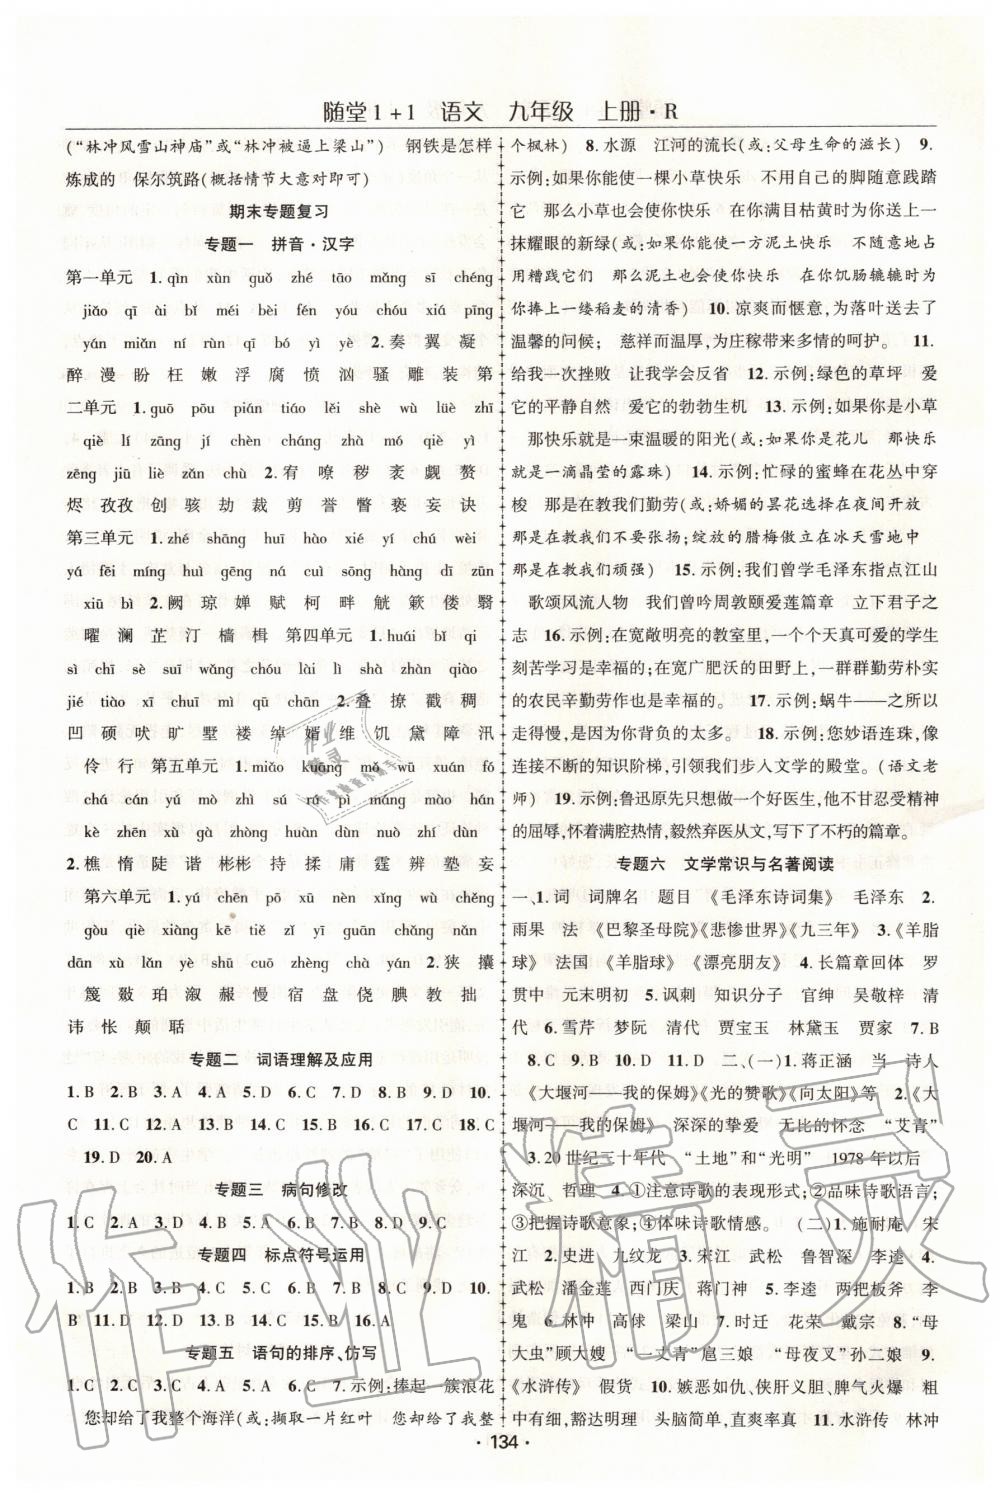 随堂1+1 语文 九年级 上册·R
(“林冲风雪山神庙”或“林冲被逼上梁山”) 钢铁是怎样
炼成的 保尔筑路(概括情节大意对即可)
期末专题复习
专题一 拼音·汉字
第一单元 1.qìn xùn guǒ zhé tāo mǎng sī chéng
jiǎo qī ài bǐ méi bèi fén yōu chóu xiá pīng
yán miǎn ní rùn qī bó yì yè 2.奏 翼 凝
醉 漫 盼 枉 嫩 浮 腐 愤 汹 骚 雕 装 第
二单元 1.guō pōu pián tiáo lěi shè wù lüè zhī
qiè lí zāng jí chèn cháng zhà mó qiè yì
zēng jiū liè zǎn chù 2.宥 嘹 秽 袤 觑 赘
烬 孜孜 创 骇 劫 裁 剪 誉 瞥 亵 妄 诀
第三单元 1.zhé shāng huī hào xié yí chú wèi
yá fēi míng huì gēng ná chí tí hàng lǚ yú
xiū bì 2.阙 琼 婵 赋 柯 畔 觥 簌 偻 翳
曜 澜 芷 汀 樯 楫 第四单元 1.huái bǐ qì
sì chī sè suī wǎng chóu lài lì shà zhàn qiào
jié tiáo xī chuī mì qū chān 2.叠 撩 戳 稠
凹 硕 吠 旷 墅 褛 绰 婿 维 饥 黛 障 汛
伶 行 第五单元 1.miǎo kuāng mǒ wǎng xuān fó
chá cán yú mò zhì sú rá pì máng máng kòu
kè zhēn xù gà zhòng huàn dùn nuò zhí dùn
2.樵 惰 陡 谐 彬彬 持 揉 庸 霆 辨 塾 妄
第六单元 1.yú chēn pō xǔ nèn xīng wù chěng
gòu qiè xiàng kē tiě zǒu yī guān chǎng nǎn
dān xù lǎn yè shū cuò zhèng chà yán 2.狭 攘
篾 敠 珀 溆 赧 慢 宿 盘 侥 腆 教 拙
讳 怅 颠 聒
专题二 词语理解及应用
1. B 2. B 3. A 4. C 5. D 6. C 7. D 8. B 9. D 10.
C 11. C 12. A 13. D 14. D 15. C 16. C 17. C 18. C
19. D 20. A
专题三 病句修改
1. C 2. A 3. D 4. C 5. A 6. C 7. D 8. D 9. C
专题四 标点符号运用
1. B 2. B 3. C 4. C 5. D 6. C 7. B 8. C 9. D 10.
B 11. D 12. D 13. A 14. C 15. B 16. A
专题五 语句的排序、仿写
1. C 2. C 3. A 4. A 5. A 6. C 7. 示例:捧起一簇浪花
您却给了我整个海洋(或:撷取一片红叶 您却给了我整
个枫林) 8. 水源 江河的流长(或:父母生命的高长) 9.
示例:如果你能使一棵小草快乐 不用自己的脚随意践踏
它 那么小草也会使你快乐 在你满目枯黄时为你送上一
抹耀眼的新绿(或:如果你能使一方泥土快乐 不随意地占
用糟践它们 那么泥土也会使你快乐 在你饥肠辘辘时为
你捧上一缕稻麦的清香) 10. 凉爽而惬意,为落叶送去了
温馨的问候; 慈祥而温厚,为庄稼带来多情的呵护。 11.
给我一次挫败 让我学会反省 12. 示例:绿色的草坪 爱
它的平静自然 爱它的勃勃生机 13. 示例:如果你是小草
那快乐就是一束温暖的阳光(或:如果你是花儿 那快乐
就是一滴晶莹的露珠) 14. 示例:忙碌的蜜蜂在花丛中穿
梭 那是在教我们勤劳(或:娇媚的昙花选择在夜里开放
那是在教我们不要张扬;绽放的腊梅傲立在冰天雪地中
那是在教我们顽强) 15. 示例:我们曾学毛泽东指点江山
歌颂风流人物 我们曾吟周敦颐爱莲篇章 立下君子之
志 16. 示例:在宽敞明亮的教室里,一个个天真可爱的学生
刻苦学习是幸福的;在宽广肥沃的田野上,一群群勤劳朴实
的农民辛勤劳作也是幸福的。 17. 示例:蜗牛——之所以
走得慢,是因为你背负的太多。 18. 示例:您妙语连珠,像
连接不断的知识阶梯,引我们走入文学的殿堂。(语文老
师) 19. 示例:鲁迅原先只想做一个好医生,他不甘忍受精神
的屈辱,怀着满腔热情,毅然弃医从文,写下了不朽的篇章。
专题六 文学常识与名著阅读
一、1. 词 词牌名 题目 《毛泽东诗词集》 毛泽东 2.
雨果 法 《巴黎圣母院》《悲惨世界》《九三年》 3.《羊脂
球》 法国 《羊脂球》《漂亮朋友》 4. 长篇章回体 罗
贯中 元末明初 5. 讽刺 知识分子 官绅 吴敬梓 清
代 6. 雪芹 梦阮 清代 贾宝玉 林黛玉 贾家 7. B
8. C 9. B 10. D 11. D 二、(一)1. 蒋正涵 当 诗人
《大堰河——我的保姆》《光的赞歌》《向太阳》等 2.《大
堰河——我的保姆》 深深的挚爱 无比的怀念 “艾青”
3. 20世纪三十年代 “土地”和“光明” 1978年以后
深沉 哲理 4. ①注意诗歌的表现形式;②品味诗歌语言;
③把握诗歌意象;④体味诗歌情感。 (二)1. 施耐庵 宋
江 2. 史进 九纹龙 3. 宋江 武松 鲁智深 李逵 4.
武松 潘金莲 西门庆 蒋门神 5. 李逵 两把板斧 李
鬼 6. 林冲 高俅 梁山 7. 时迁 花荣 戴宗 8. “母
大虫”顾大嫂 “一丈青”扈三娘 “母夜叉”孙二娘 9.
《水浒传》 假货 10. 嫉恶如仇、侠肝义胆、脾气火爆 粗
中有细,豁达明理 头脑简单、直爽率真 11. 水浒传 林冲
· 134 ·
作业精灵